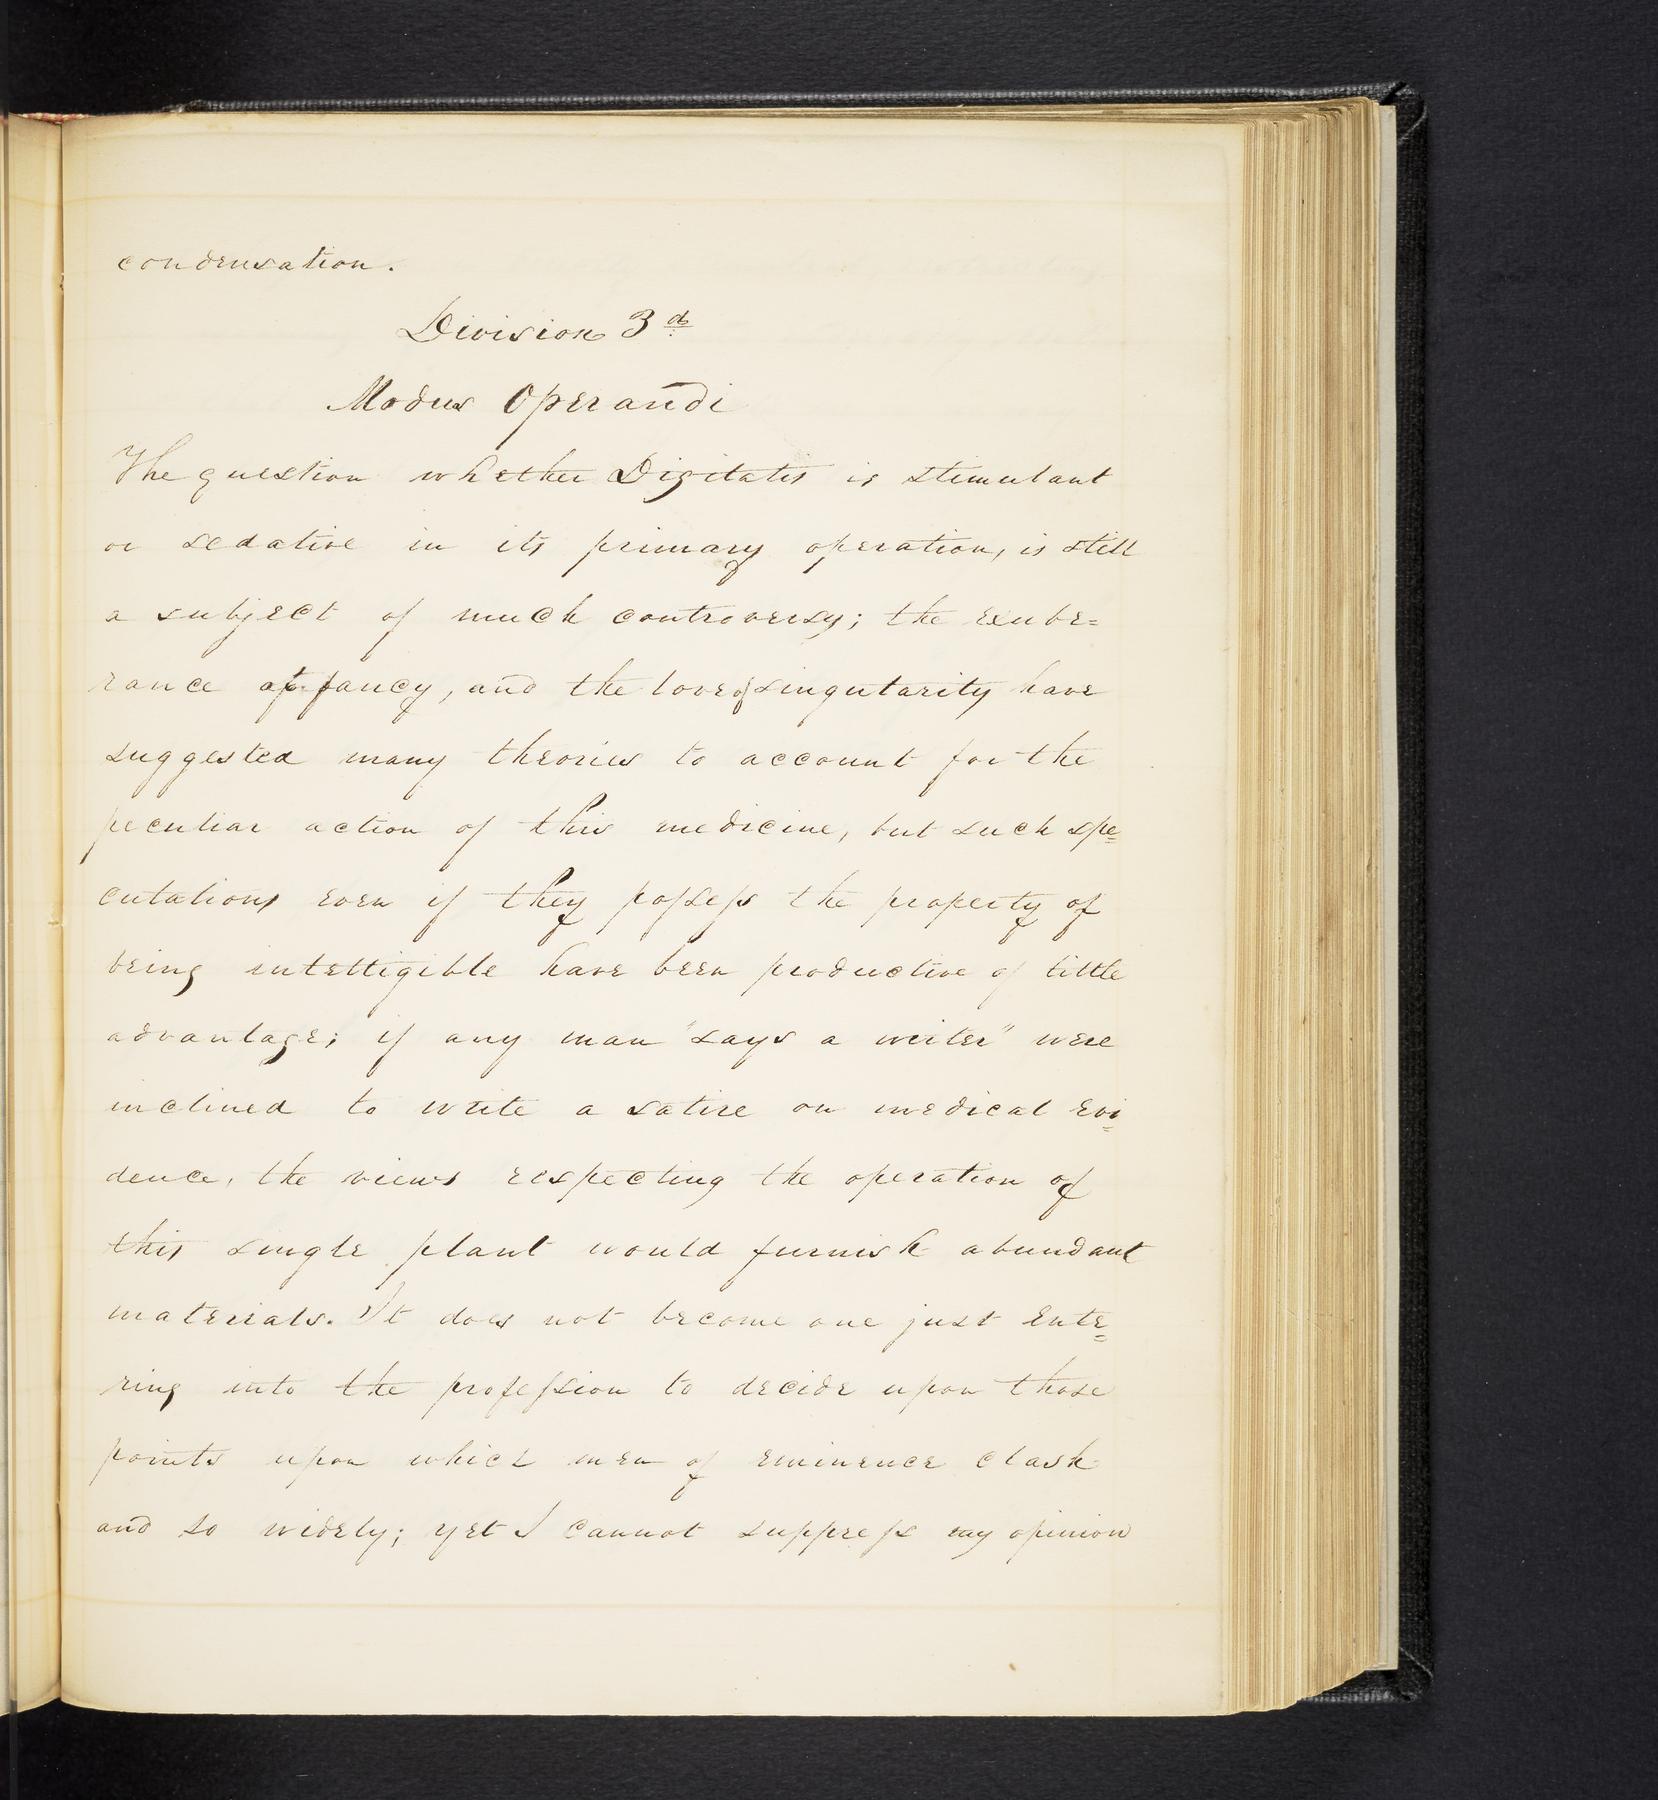 condensation.
Division 3d
Modus Operandi
The question whether Digitalis is stimulant
or sedative in its primary operation, is still
a subject of much controversy; the exube=
rance of fancy, and the love of singularity have
suggested many theories to account for the
peculiar action of this medicine, but such spe=
culations even if they possess the property of
being intelligible have been productive of little
advantage; if any man "says a writer" were
inclined to write a satire on medical evi=
dence, the views respecting the operation of
this single plant would furnish abundant
materials. It does not become one just ente=
ring into the profession to decide upon those
points upon which men of eminence clash
and so widely; yet I cannot suppress my opinion